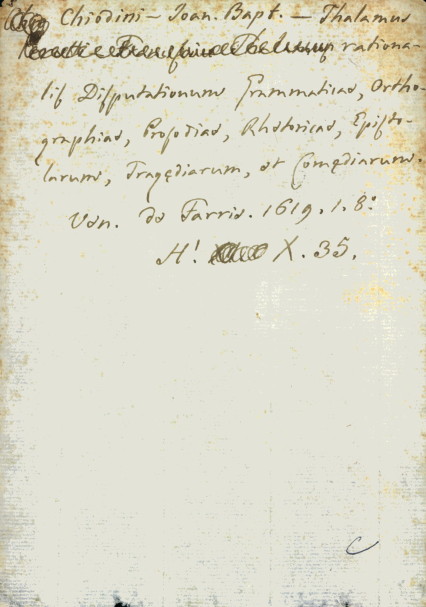 Chiodini – Joan. Bapt. – Thalamus
rationa-
lis Disputationum Grammaticae, Ortho-
graphiae, Prosodiae, Rhetoricae, Episto-
larum, Tragędiarum, et Comędiarum.
Ven. de Farris. 1619. 1. 8.°
H! X. 35.
C